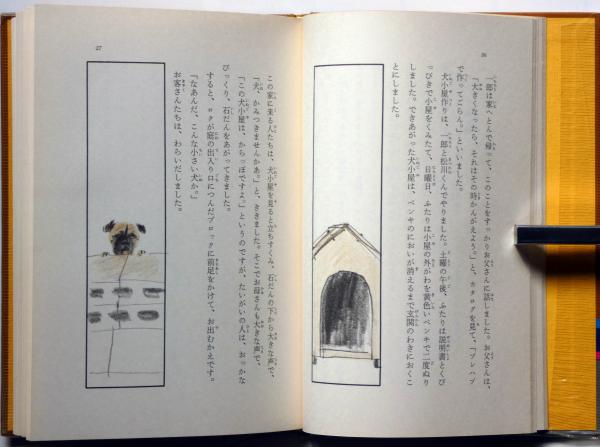 26
一郎は家へとんで帰って、このことをすっかりお父さんに話しました。お父さんは、
「大きくなったら、それはその時かんがえよう。」と、カタログを見て、「プレハブ
で作ってごらん。」といいました。
犬小屋作りは、一郎と松川くんでやりました。土曜の午後、ふたりは説明書とくび
っぴきで小屋をくみたて、日曜日、ふたりは小屋の外がわを黄色いペンキで二度ぬり
しました。できあがった犬小屋は、ペンキのにおいが消えるまで玄関のわきにおくこ
とにしました。
この家に来る人たちは、犬小屋を見ると立ちすくみ、石だんの下から大きな声で、
「犬、かみつきませんかあ。」と、ききました。そこでお母さんも大きな声で、
「この犬小屋は、からっぽですよ。」というのですが、たいがいの人は、おっかな
びっくり、石だんをあがってきました。
すると、ロクが庭の出入り口につんだブロックに前足をかけて、お出むかえです。
「なあんだ、こんな小さい犬か。」
お客さんたちは、わらいだしました。
27